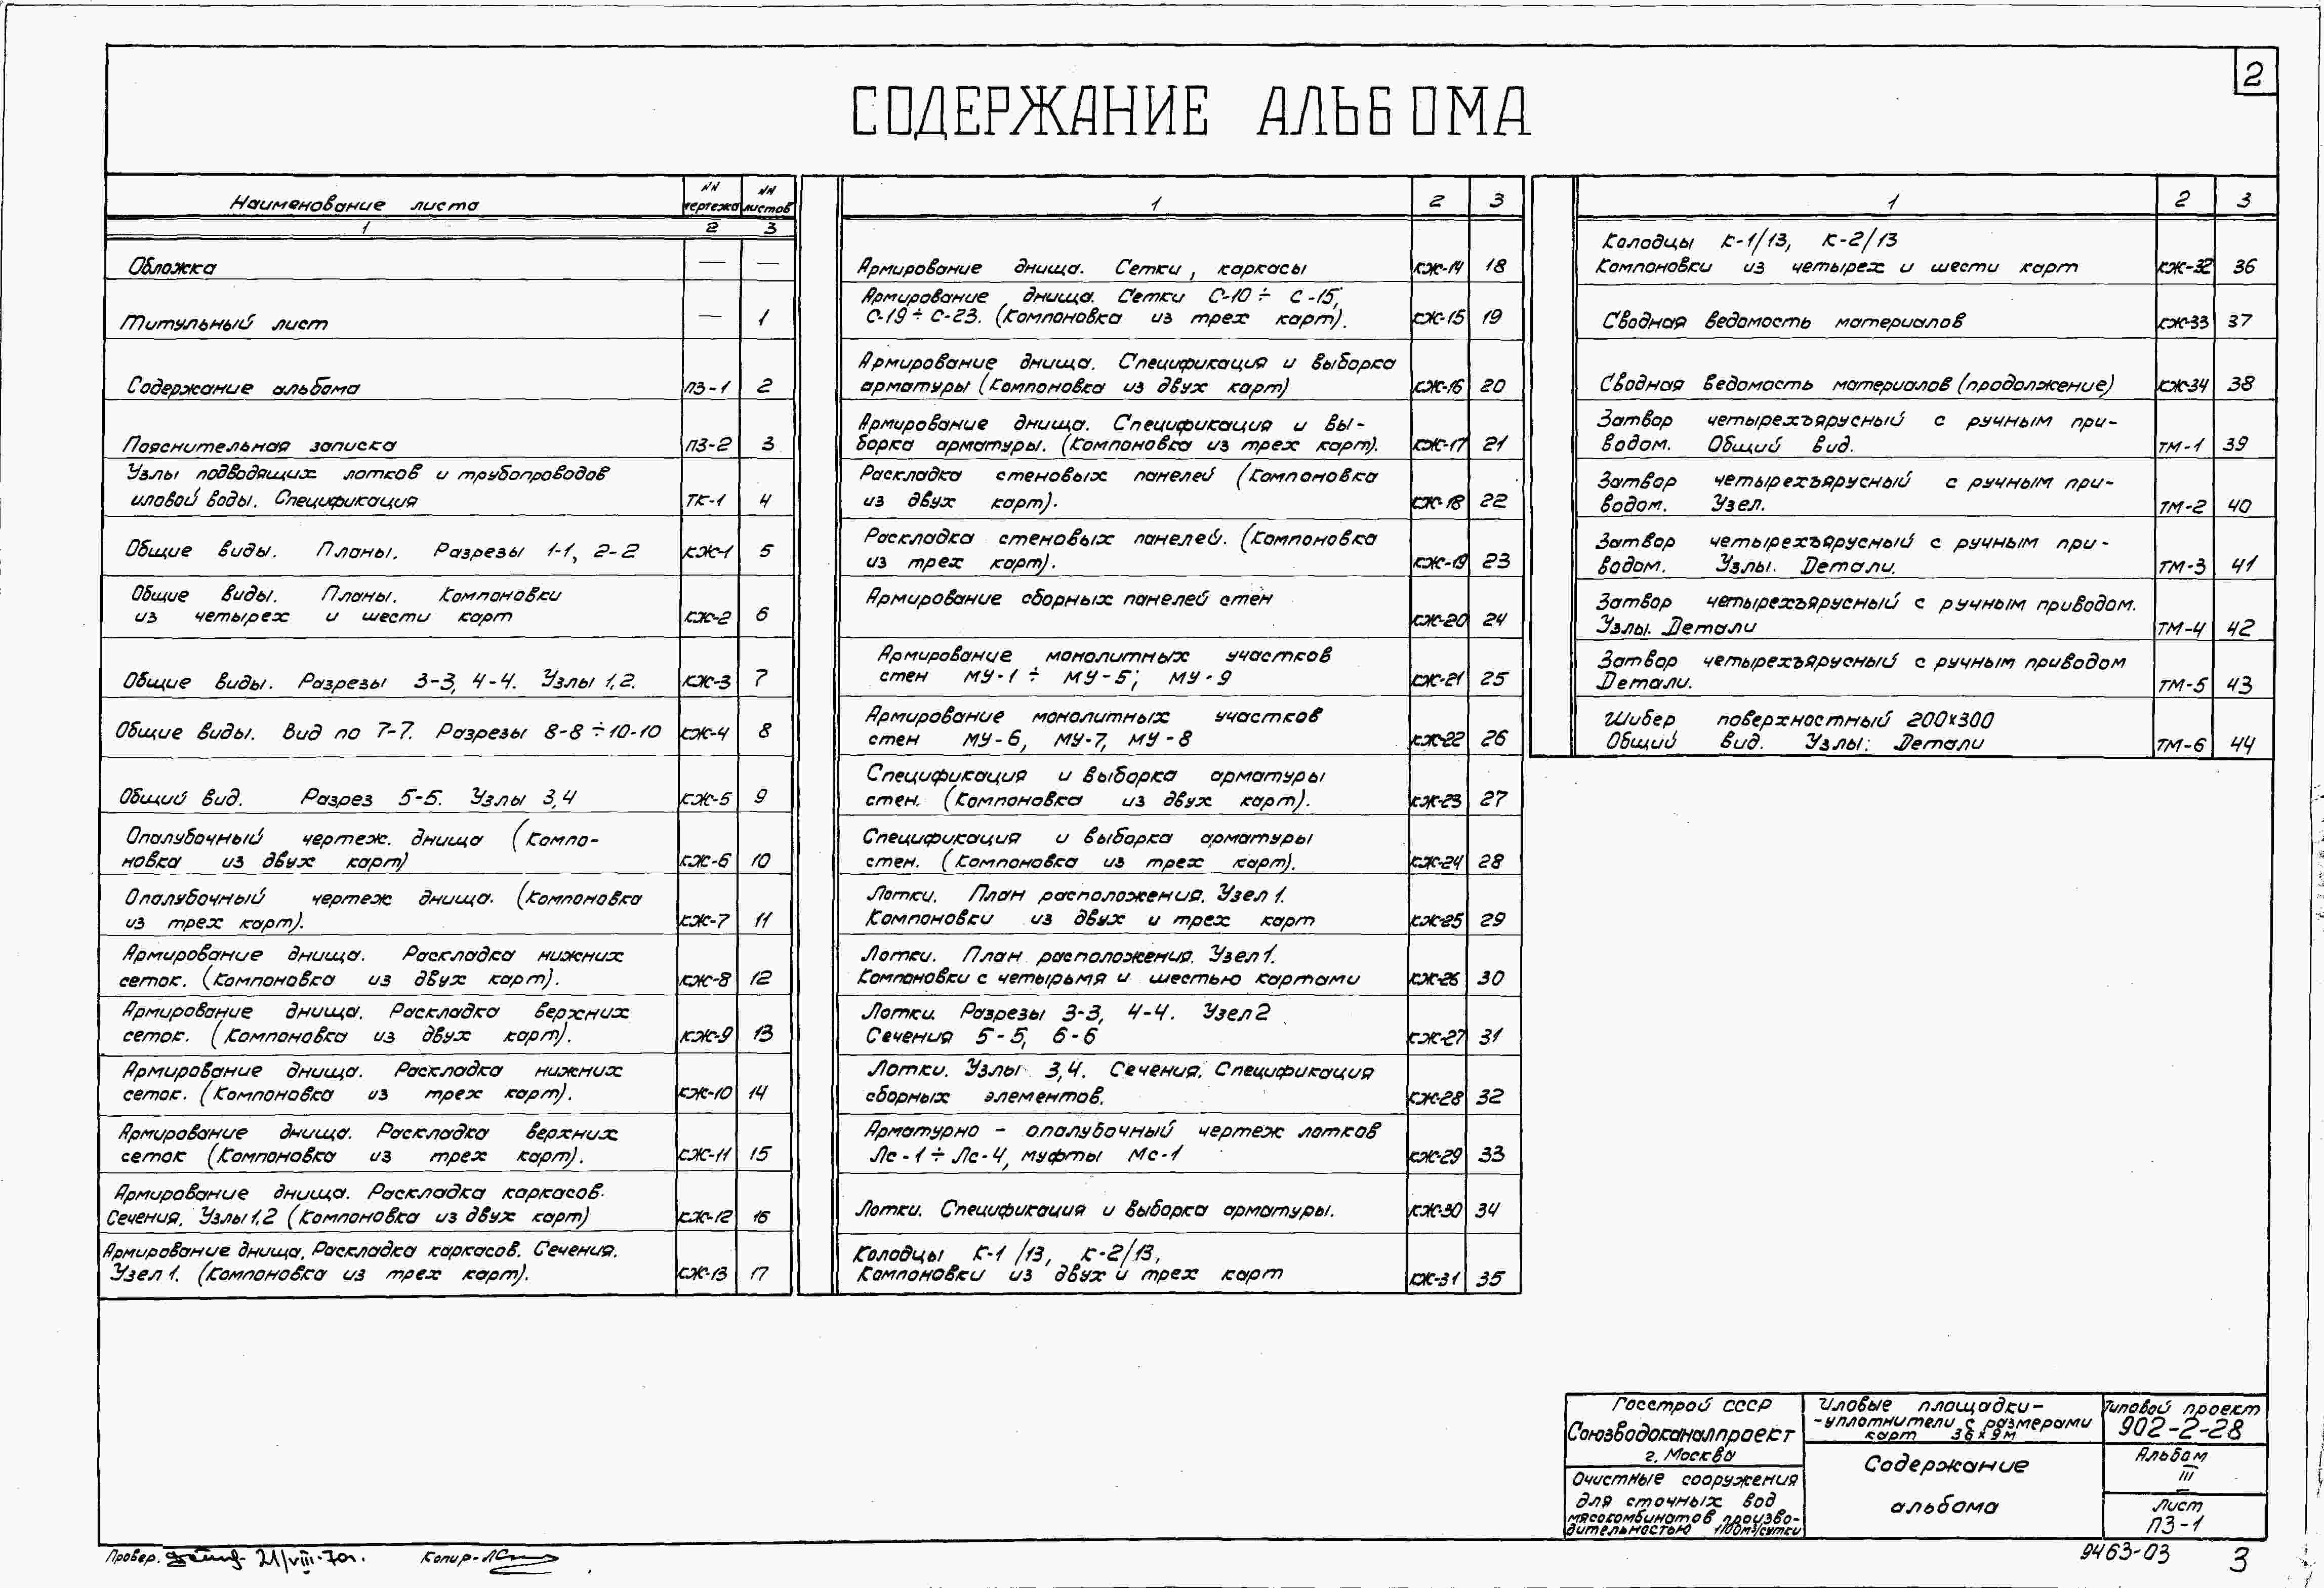 2
СОДЕРЖАНИЕ АЛЬБОМА
Наименование листа NN чертежа NN листов
1 2 3
Обложка — —
Титульный лист — 1
Содержание альбома ПЗ-1 2
Пояснительная записка ПЗ-2 3
Узлы подводящих лотков и трубопроводов
иловой воды. Спецификация ТК-1 4
Общие виды. Планы. Разрезы 1-1, 2-2 КЖ-1 5
Общие виды. Планы. Компоновки
из четырех и шести карт КЖ-2 6
Общие виды. Разрезы 3-3, 4-4. Узлы 1,2. КЖ-3 7
Общие виды. Вид по 7-7. Разрезы 8-8 ÷ 10-10 КЖ-4 8
Общий вид. Разрез 5-5. Узлы 3,4 КЖ-5 9
Опалубочный чертеж. днища (Компо-
новка из двух карт) КЖ-6 10
Опалубочный чертеж днища. (Компоновка
из трех карт). КЖ-7 11
Армирование днища. Раскладка нижних
сеток. (Компоновка из двух карт). КЖ-8 12
Армирование днища. Раскладка верхних
сеток. (Компоновка из двух карт). КЖ-9 13
Армирование днища. Раскладка нижних
сеток. (Компоновка из трех карт). КЖ-10 14
Армирование днища. Раскладка верхних
сеток (Компоновка из трех карт). КЖ-11 15
Армирование днища. Раскладка каркасов.
Сечения. Узлы 1,2 (Компоновка из двух карт) КЖ-12 16
Армирование днища. Раскладка каркасов. Сечения.
Узел 1. (Компоновка из трех карт). КЖ-13 17
1 2 3
Армирование днища. Сетки, каркасы КЖ-14 18
Армирование днища. Сетки С-10 ÷ С-15,
С-19 ÷ С-23. (Компоновка из трех карт). КЖ-15 19
Армирование днища. Спецификация и выборка
арматуры (Компоновка из двух карт) КЖ-16 20
Армирование днища. Спецификация и вы-
борка арматуры. (Компоновка из трех карт). КЖ-17 21
Раскладка стеновых панелей (Компоновка
из двух карт). КЖ-18 22
Раскладка стеновых панелей. (Компоновка
из трех карт). КЖ-19 23
Армирование сборных панелей стен
КЖ-20 24
Армирование монолитных участков
стен МУ-1 ÷ МУ-5; МУ-9 КЖ-21 25
Армирование монолитных участков
стен МУ-6, МУ-7, МУ-8 КЖ-22 26
Спецификация и выборка арматуры
стен. (Компоновка из двух карт). КЖ-23 27
Спецификация и выборка арматуры
стен. (Компоновка из трех карт). КЖ-24 28
Лотки. План расположения. Узел 1.
Компоновки из двух и трех карт КЖ-25 29
Лотки. План расположения. Узел 1.
Компоновки с четырьмя и шестью картами КЖ-26 30
Лотки. Разрезы 3-3, 4-4. Узел 2
Сечения 5-5, 6-6 КЖ-27 31
Лотки. Узлы 3,4. Сечения. Спецификация
сборных элементов. КЖ-28 32
Арматурно - опалубочный чертеж лотков
Лс-1 ÷ Лс-4, муфты Мс-1 КЖ-29 33
Лотки. Спецификация и выборка арматуры. КЖ-30 34
Колодцы К-1/13, К-2/13,
Компоновки из двух и трех карт КЖ-31 35
1 2 3
Колодцы К-1/13, К-2/13
Компоновки из четырех и шести карт КЖ-32 36
Сводная ведомость материалов КЖ-33 37
Сводная ведомость материалов (продолжение) КЖ-34 38
Затвор четырехъярусный с ручным при-
водом. Общий вид. ТМ-1 39
Затвор четырехъярусный с ручным при-
водом. Узел. ТМ-2 40
Затвор четырехъярусный с ручным при-
водом. Узлы. Детали. ТМ-3 41
Затвор четырехъярусный с ручным приводом.
Узлы. Детали ТМ-4 42
Затвор четырехъярусный с ручным приводом
Детали. ТМ-5 43
Шибер поверхностный 200×300
Общий вид. Узлы: Детали ТМ-6 44
Госстрой СССР
Союзводоканалпроект
г. Москва
Очистные сооружения
для сточных вод
мясокомбинатов произво-
дительностью м³/сутки
Иловые площадки-
-уплотнители с размерами
карт 36×9м
Содержание
альбома
Типовой проект
902-2-28
Альбом
III
Лист
ПЗ-1
Провер. 21/VIII-70г. Копир-
9463-03 3